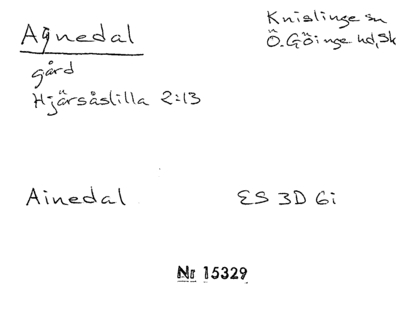 Agnedal
Knislinge sn
Ö. Göinge hd, Sk
gård
Hjärsåslilla 2:13
Ainedal
ES 3D 6i
Nr 15329